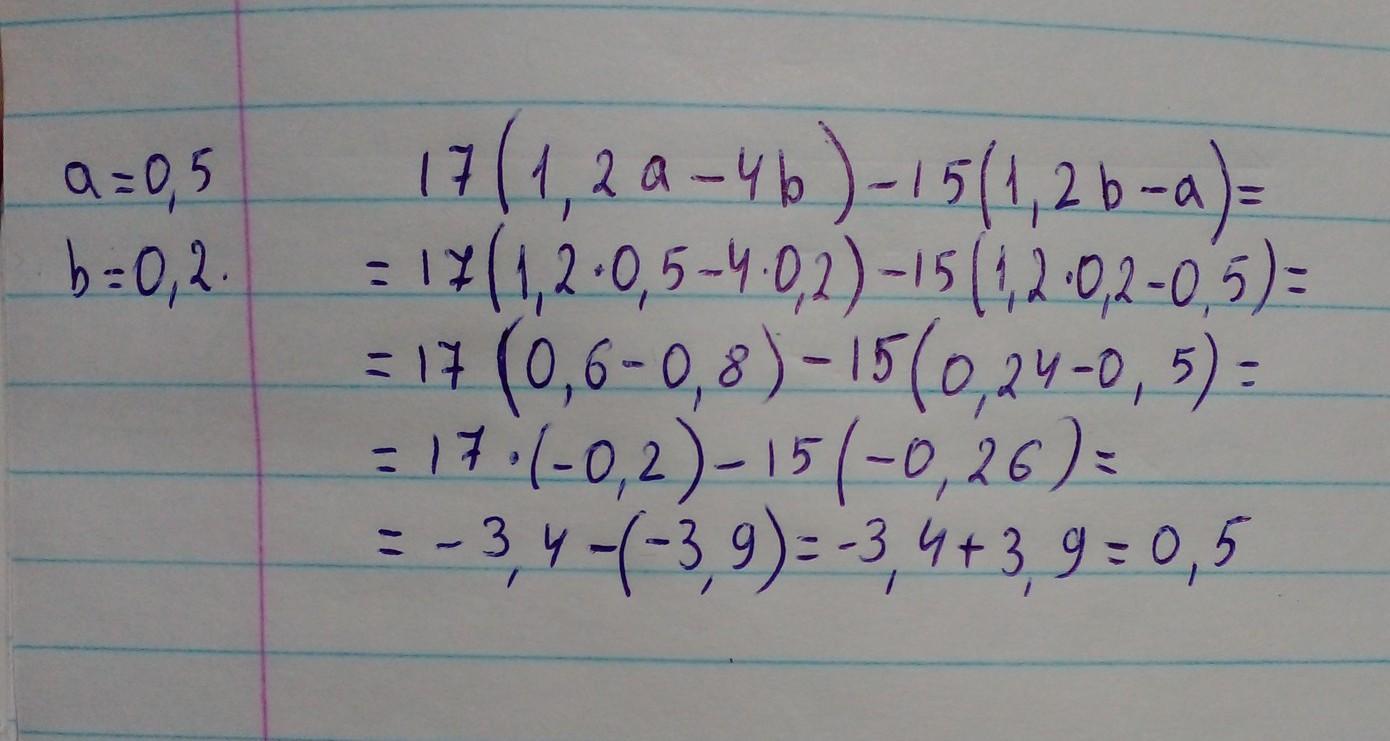 a=0,5
b=0,2.
17(1,2a-4b)-15(1,2b-a)=
=17(1,2·0,5-4·0,2)-15(1,2·0,2-0,5)=
=17(0,6-0,8)-15(0,24-0,5)=
=17·(-0,2)-15(-0,26)=
=-3,4-(-3,9)=-3,4+3,9=0,5